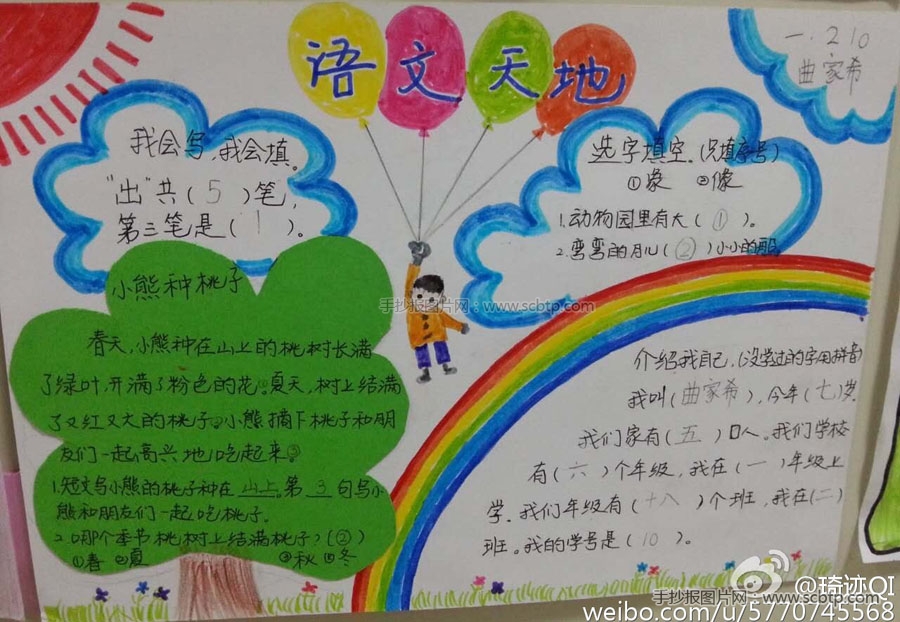 语文天地
一.210
曲家希
我会写,我会填。
"出"共(5)笔,
第三笔是(丨)。
选字填空。(只填序号)
①象 ②像
1.动物园里有大(①)。
2.弯弯的月儿(②)小小的船
小熊种桃子
春天,小熊种在山上的桃树长满
了绿叶,开满了粉色的花。夏天,树上结满
了又红又大的桃子。小熊摘下桃子和朋
友们一起高兴地吃起来。
1.短文写小熊的桃子种在山上。第3句写小
熊和朋友们一起吃桃子。
2.哪个季节桃树上结满桃子?(②)
①春 ②夏 ③秋 ④冬
介绍我自己,(没学过的字用拼音)
我叫(曲家希),今年(七)岁,
我们家有(五)口人。我们学校
有(六)个年级,我在(一)年级上
学。我们年级有(十八)个班,我在(二)
班。我的学号是(10)。
手抄报图片网:www.scbtp.com
手抄报图片网:www.scbtp.com
@琦迹QI
weibo.com/u/5770745568